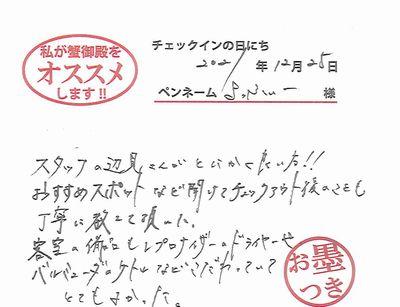 私が蟹御殿を
オススメ
します!!
チェックインの日にち
2021年12月25日
ペンネーム 様
スタッフの辺見さんがとにかく良い方!!
おすすめスポットなど聞けてチェックアウト後のことも
丁寧に教えて頂いた。
客室の備品もレプロナイザーのドライヤーや
バルミューダのケトルなどこだわっていて
とてもよかった。
お墨
つき